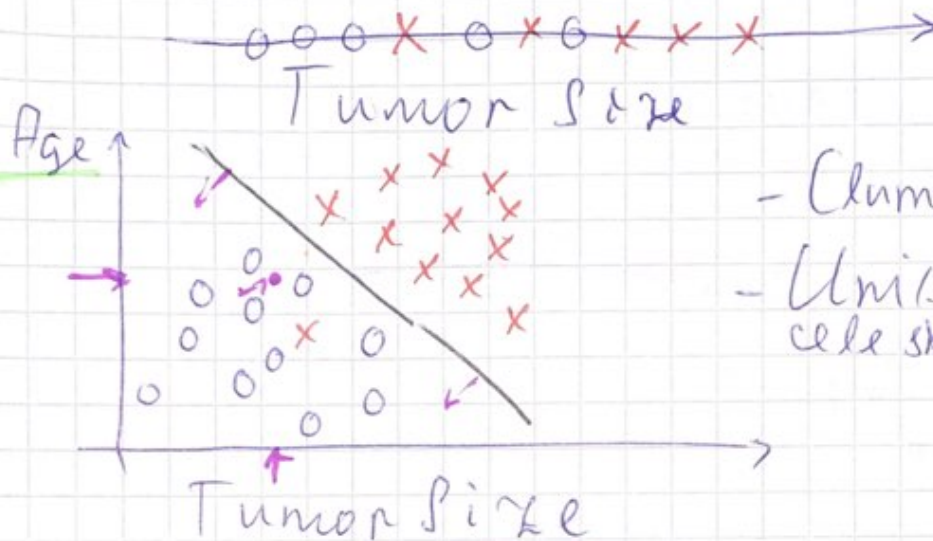 Tumor Size
Age
- Clum
- Unif
Tumor Size